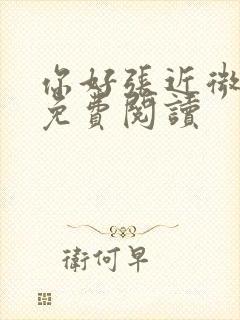 你好張近微
免費閱讀
衛何早